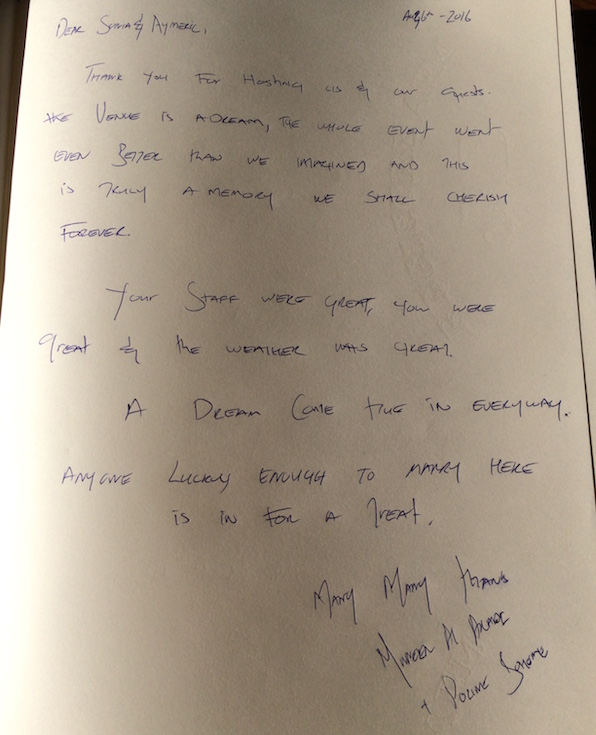 Aug 6th - 2016
DEAR SONIA & AYMERIC,
THANK YOU FOR HOSTING US & OUR GUESTS.
THE VENUE IS A DREAM, THE WHOLE EVENT WENT
EVEN BETTER THAN WE IMAGINED AND THIS
IS TRULY A MEMORY WE SHALL CHERISH
FOREVER.
YOUR STAFF WERE GREAT, YOU WERE
GREAT & THE WEATHER WAS GREAT.
A DREAM COME TRUE IN EVERYWAY.
ANYONE LUCKY ENOUGH TO MARRY HERE
IS IN FOR A TREAT.
MANY MANY THANKS
+